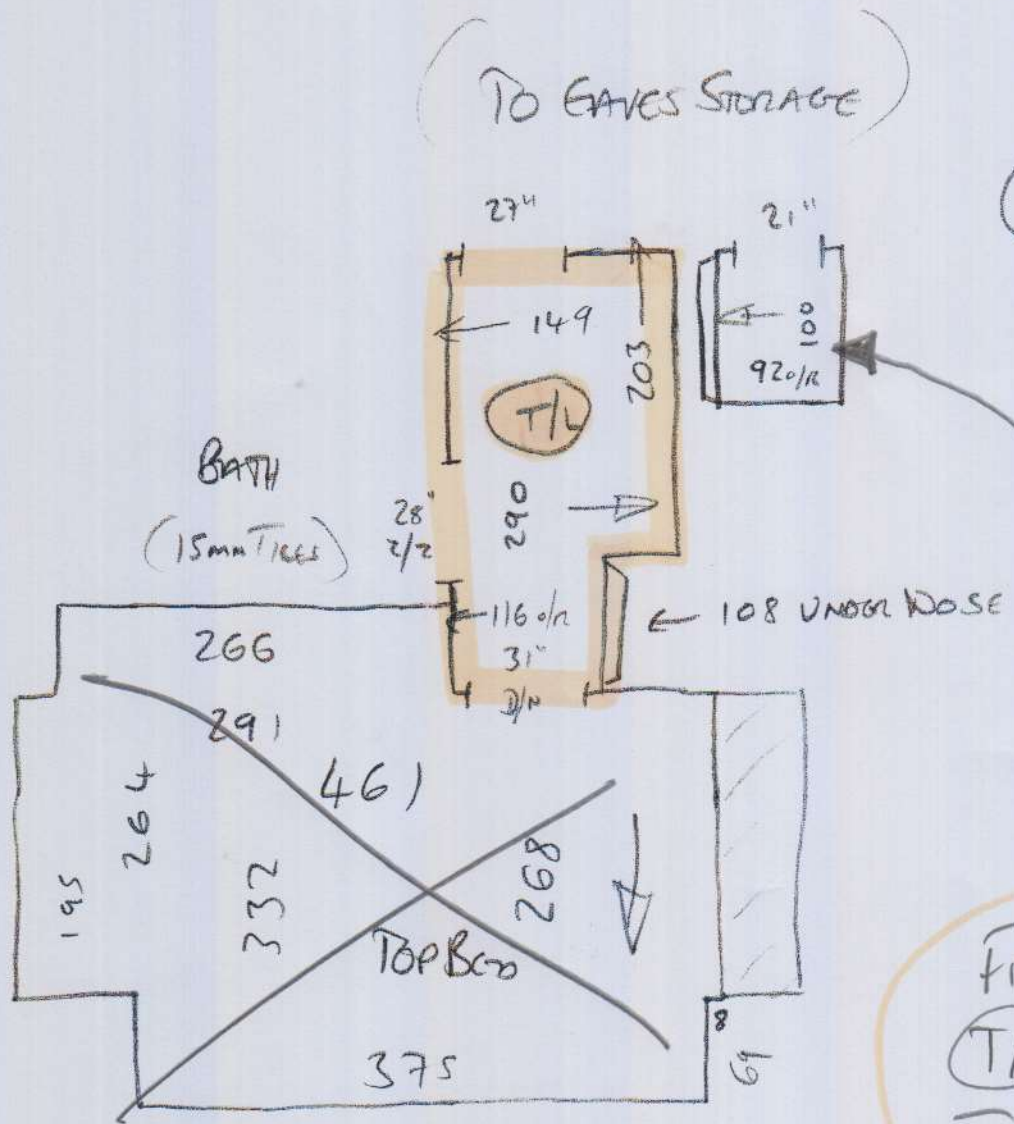 (TO EAVES STORAGE)
27"
21"
149
203
100
92 o/R
T/L
BATH
(15mm TILES)
28"
2/2
290
116 o/R
108 UNDER NOSE
31"
D/N
266
291
461
264
195
332
268
TOP BED
375
8
69